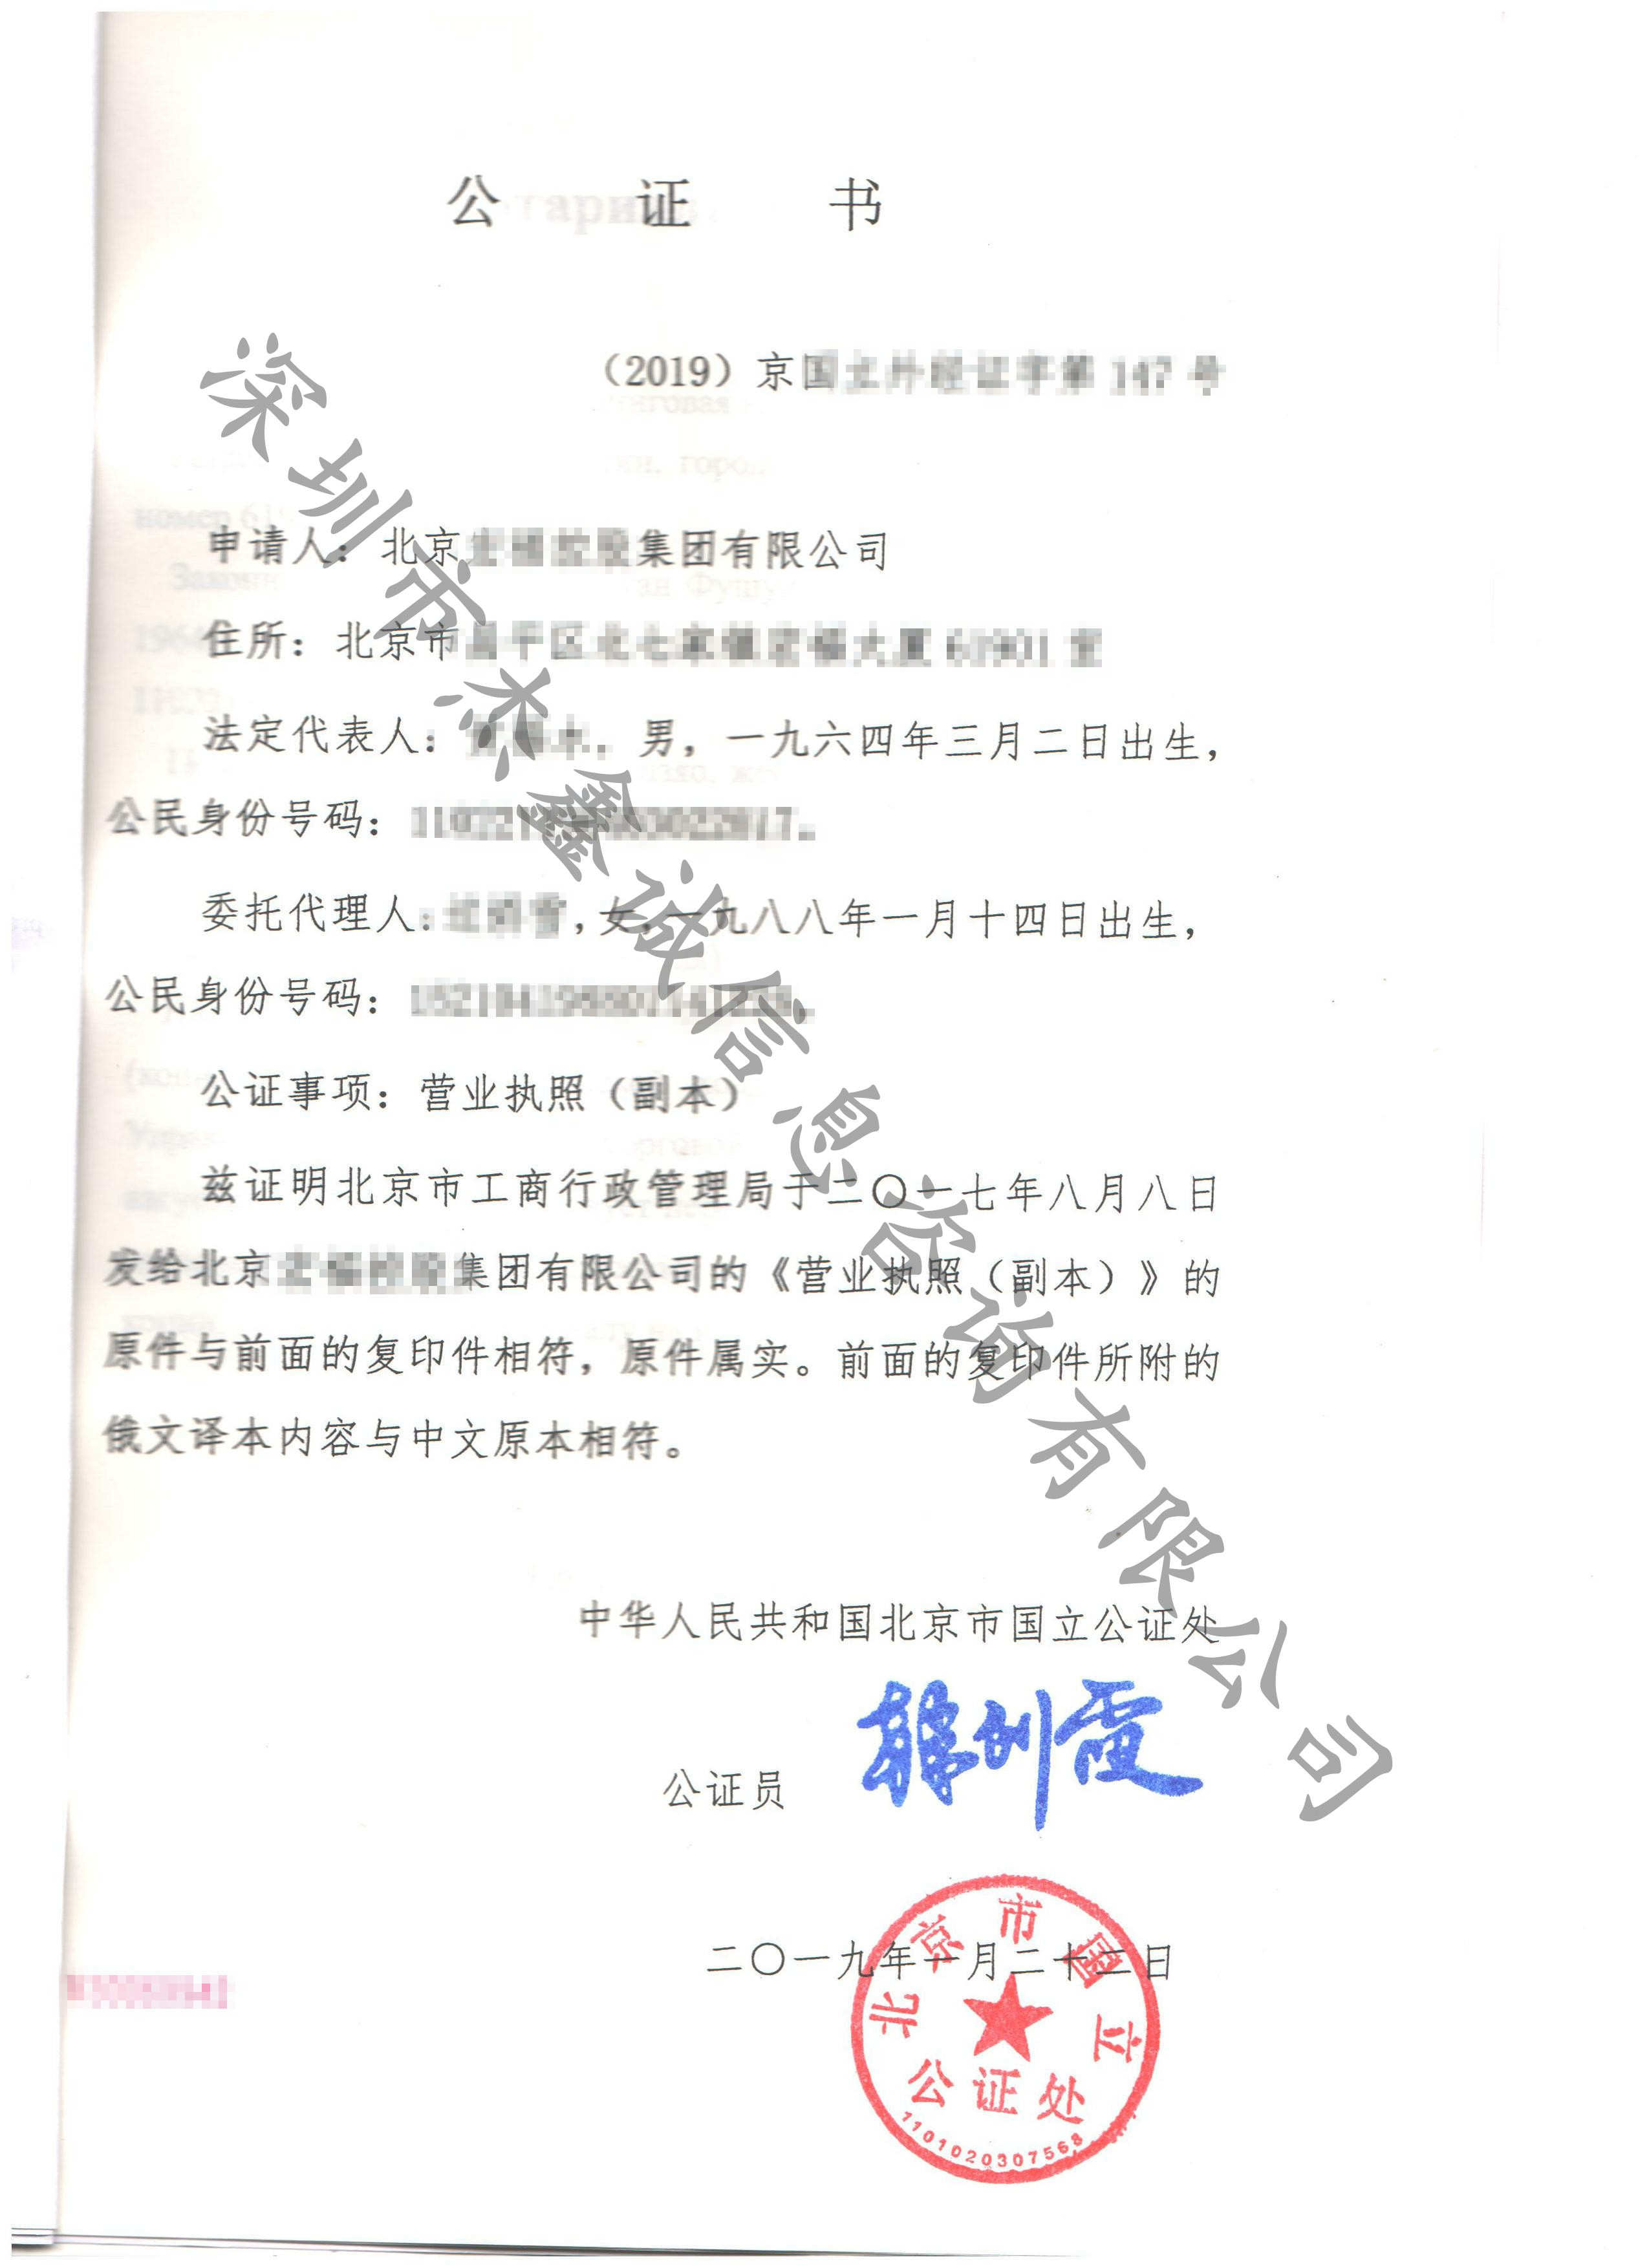 公 证 书
（2019）京国
申请人：北京
集团有限公司
住所：北京市
法定代表人：
男，一九六四年三月二日出生，
公民身份号码：
委托代理人：
，女，一九八八年一月十四日出生，
公民身份号码：
公证事项：营业执照（副本）
兹证明北京市工商行政管理局于二〇一七年八月八日
发给北京
集团有限公司的《营业执照（副本）》的
原件与前面的复印件相符，原件属实。前面的复印件所附的
俄文译本内容与中文原本相符。
中华人民共和国北京市国立公证处
公证员
二〇一九年一月二十二日
北京市国立
公证处
1101020307568
深圳市杰鑫诚信息咨询有限公司